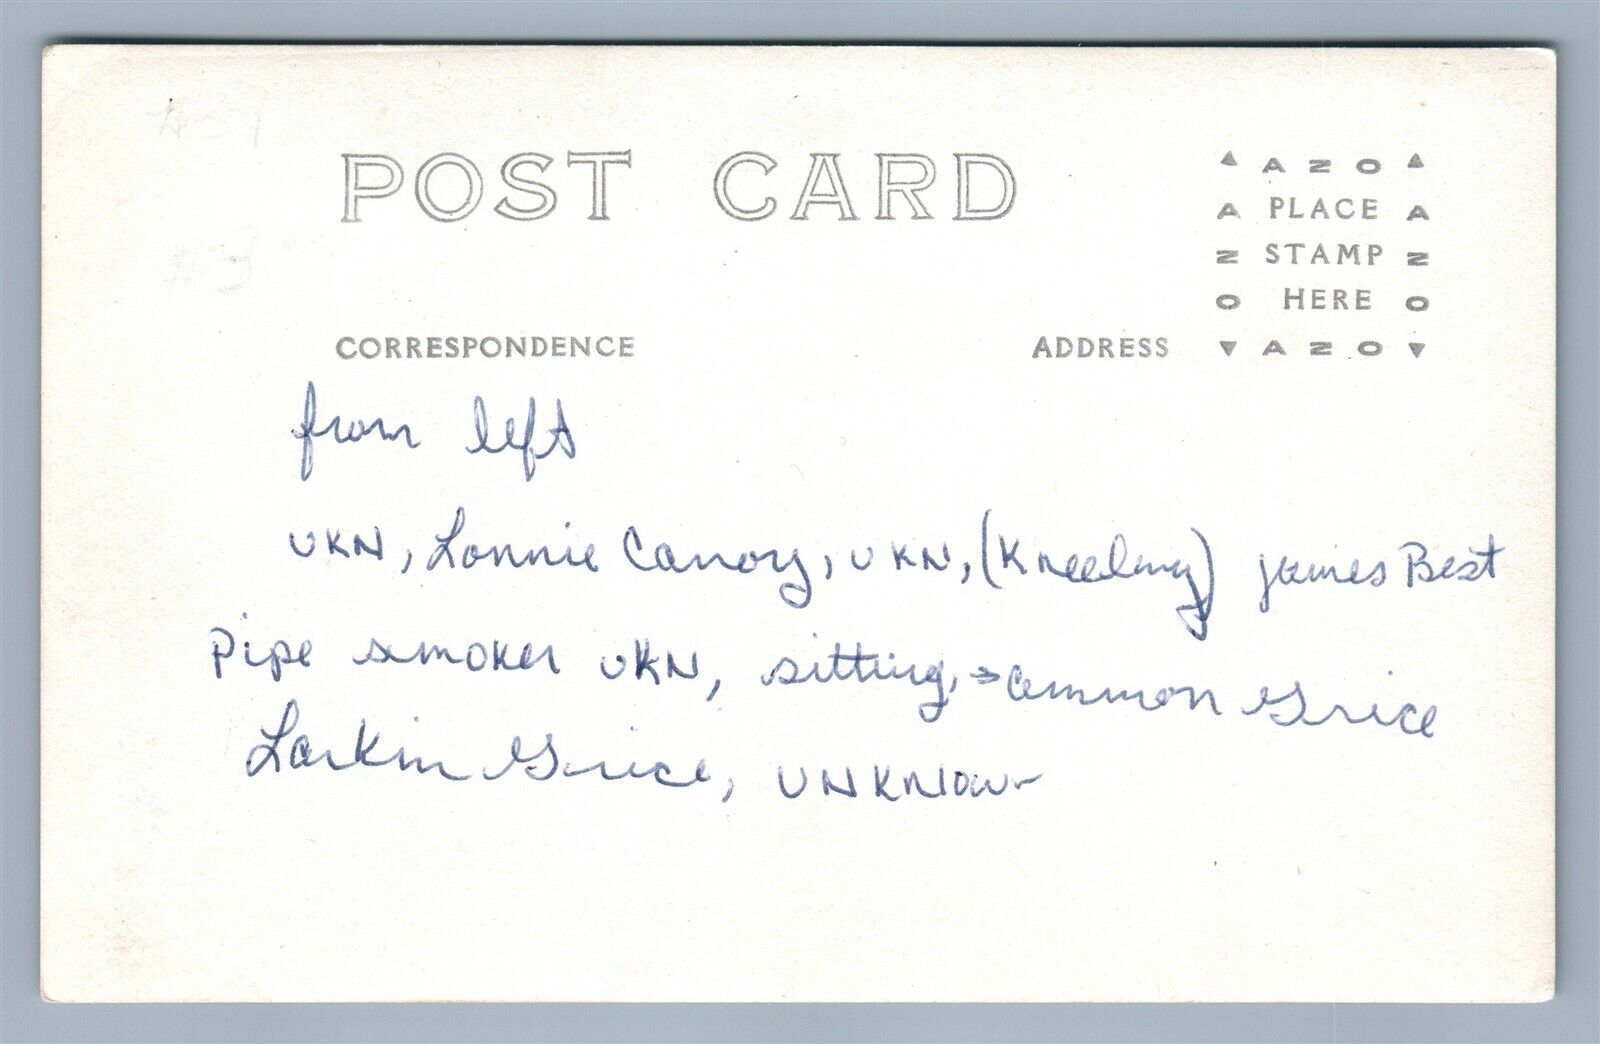 POST CARD
▲ AZO ▲
A PLACE A
N STAMP N
O HERE O
▼ AZO ▼
CORRESPONDENCE ADDRESS
from left
UKN, Lonnie Canoy, UKN, (Kneeling) James Best
Pipe smoker UKN, sitting, → Ammon Grice
Larkin Grice, UNKNOWN